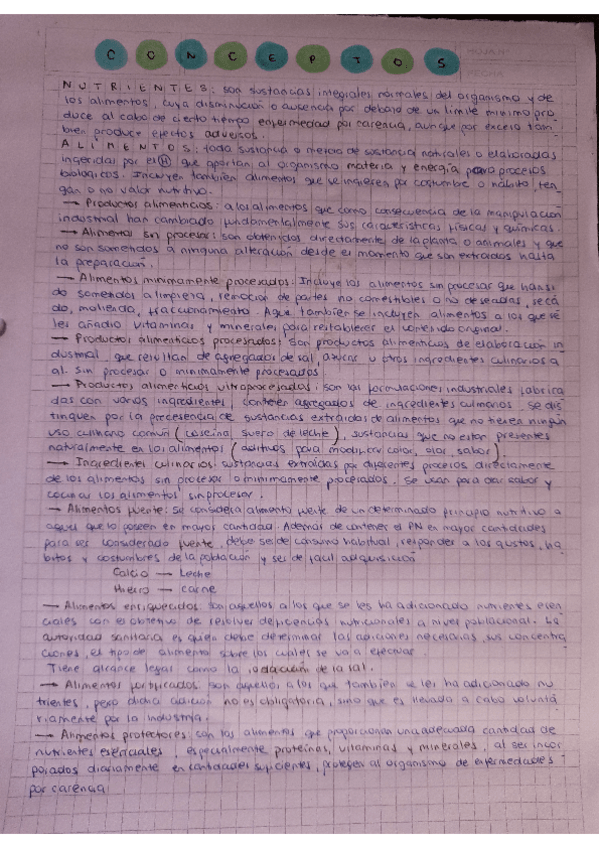 CONCEPTOS
HOJA Nº
FECHA
NUTRIENTES: son sustancias integrales normales del organismo y de
los alimentos, cuya disminución o ausencia por debajo de un límite mínimo pro
duce al cabo de cierto tiempo enfermedad por carencia, aunque por exceso tam
bien produce efectos adversos.
ALIMENTOS: toda sustancia o mezcla de sustancia naturales o elaboradas
ingeridas por el (H) que aportan al organismo materia y energía para procesos
biologicos. Incluyen también alimentos que se ingieren por costumbre o hábito, ten
gan o no valor nutritivo.
→ Productos alimenticios: a los alimentos que como consecuencia de la manipulación
industrial han cambiado fundamentalmente sus características físicas y químicas.
→ Alimentos sin procesar: son obtenidos directamente de la planta o animales y que
no son sometidos a ninguna alteración desde el momento que son extraídos hasta
la preparación.
→ Alimentos minimamente procesados: Incluye los alimentos sin procesar que han si
do sometidos a limpieza, remocion de partes no comestibles o no deseadas, seca
do, molienda, fraccionamiento. Aquí también se incluyen alimentos a los que se
les añadio vitaminas y minerales para restablecer el contenido original.
→ Productos alimenticios procesados: son productos alimenticios de elaboración in
dustrial, que resultan de agregados de sal, azucar u otros ingredientes culinarios a
al. sin procesar o minimamente procesados
→ Productos alimenticios ultraprocesados: son las formulaciones industriales fabrica
das con varios ingredientes, contienen agregados de ingredientes culinarios. se dis
tinguen por la precesencia de sustancias extraidas de alimentos que no tienen ningún
uso culinario común (caseína, suero de leche), sustancias que no estan presentes
naturalmente en los alimentos (aditivos para modificar color, olor, sabor).
→ Ingredientes culinarios: sustancias extraídas por diferentes procesos directamente
de los alimentos sin procesar o minimamente procesados. Se usan para dar sabor y
cocinar los alimentos sin procesar.
→ Alimentos fuente: Se considera alimento fuente de un determinado principio nutritivo a
aquel que lo poseen en mayor cantidad. Además de contener el PN en mayor cantidades
para ser considerado fuente, debe ser de consumo habitual, responder a los gustos, há
bitos y costumbres de la población y ser de facil adquisicion
Calcio → Leche
Hierro → Carne
→ Alimentos enriquecidos: son aquellos a los que se les ha adicionado nutrientes esen
ciales con el objetivo de resolver deficiencias nutricionales a nivel poblacional. La
autoridad sanitaria es quien debe determinar las adiciones necesarias, sus concentra
ciones, el tipo de alimento sobre los cuales se va a efectuar.
Tiene alcance legal como la iodación de la sal.
→ Alimentos fortificados: son aquellos a los que también se les ha adicionado nu
trientes, pero dicha adición no es obligatoria, sino que es llevada a cabo volunta
riamente por la industria.
→ Alimentos protectores: son los alimentos que proporcionan una adecuada cantidad de
nutrientes esenciales, especialmente proteínas, vitaminas y minerales, al ser incor
porados diariamente en cantidades suficientes, protegen al organismo de enfermedades
por carencia